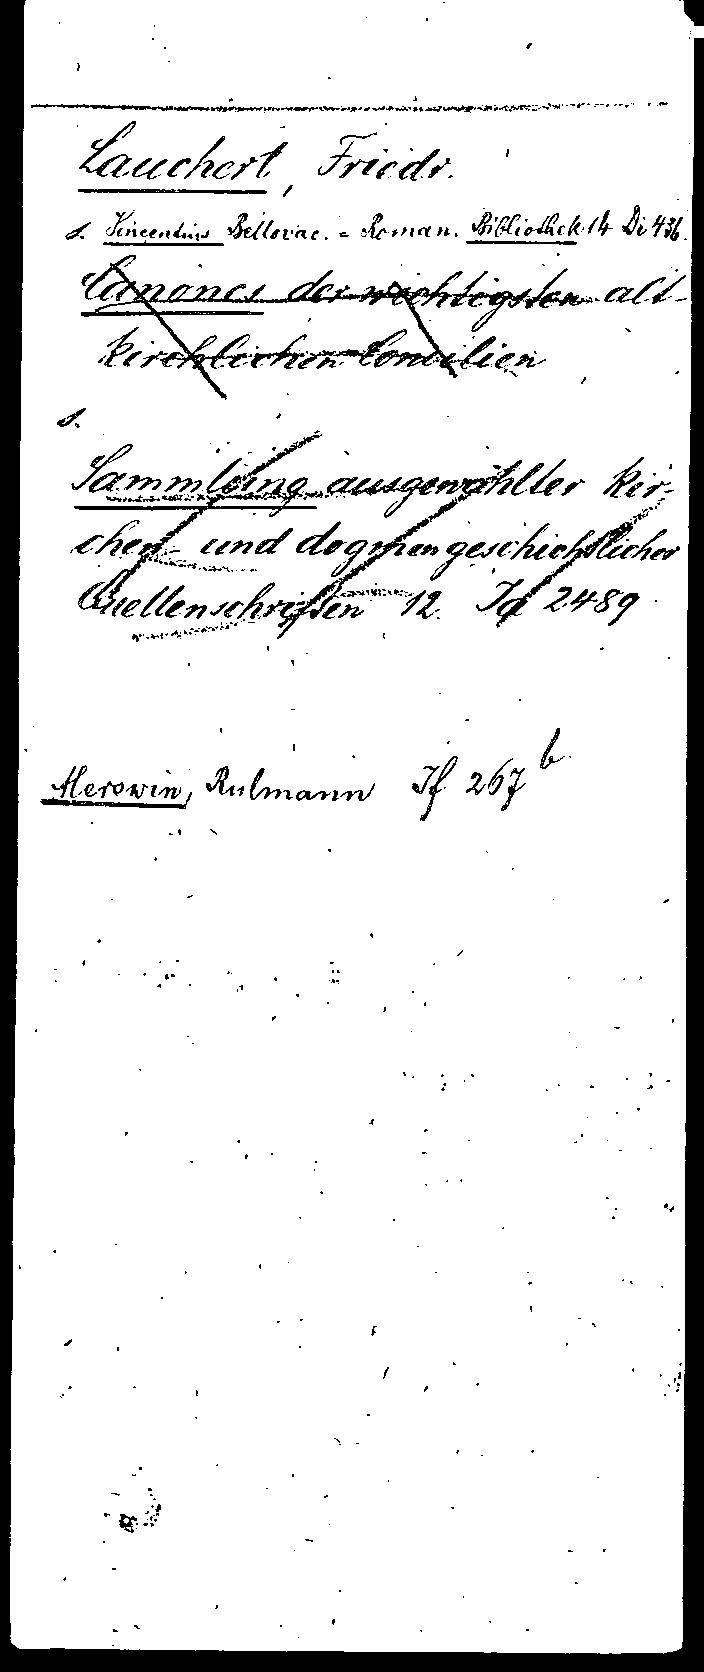 Lauchert, Friedr.
s. Vincentius Bellovac. = Roman. Bibliothek 14 Di 436.
Canones der wichtigsten alt-
kirchlichen Concilien
s.
Sammlung ausgewählter kir-
chen- und dogmengeschichtlicher
Quellenschriften 12. Id 2489
Merswin, Rulmann If 267 b